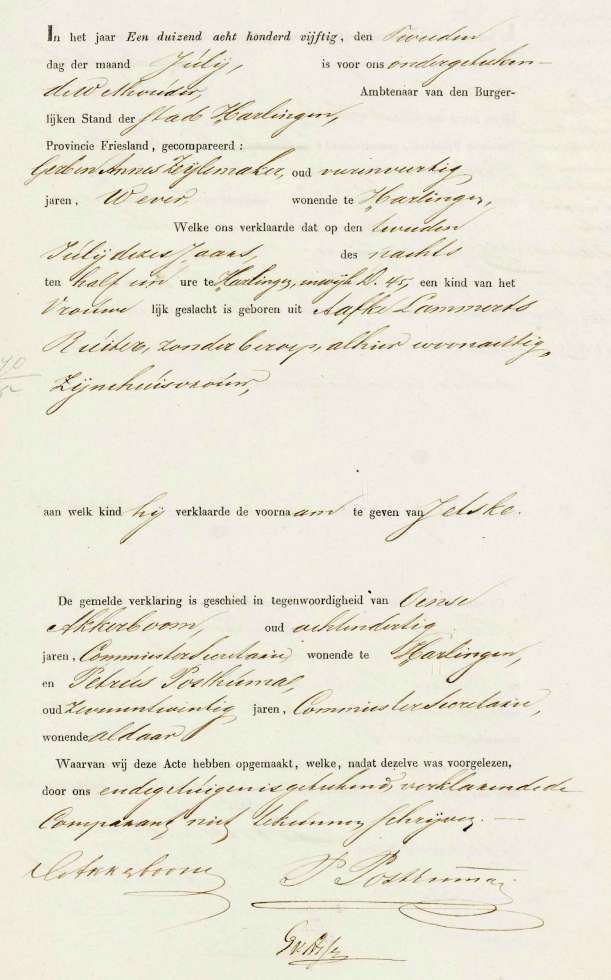 In het jaar Een duizend acht honderd vijftig, den Tweeden
dag der maand Julij, is voor ons ondergeteken-
de Wethouder, Ambtenaar van den Burger-
lijken Stand der stad Harlingen,
Provincie Friesland, gecompareerd:
Gerben Annes Zijlemaker, oud vierenveertig
jaren, Wever wonende te Harlingen,
Welke ons verklaarde dat op den tweeden
Julij dezes Jaars, des nachts
ten half een ure te Harlingen, in wijk D. 45, een kind van het
Vrouwe lijk geslacht is geboren uit Aafke Lammerts
Ruiter, zonder beroep, alhier woonachtig,
Zijne huisvrouw,
aan welk kind hij verklaarde de voornaam te geven van Jetske.
De gemelde verklaring is geschied in tegenwoordigheid van Oense
Akkerboom, oud achtendertig
jaren, Commies ter Secretarie wonende te Harlingen,
en Petrus Posthumas,
oud Zevenentwintig jaren, Commies ter Secretarie,
wonende aldaar
Waarvan wij deze Acte hebben opgemaakt, welke, nadat dezelve was voorgelezen,
door ons en de getuigen is getekend, verklarende de
Comparant niet te kunnen schrijven.
O Akkerboom
P Posthumus